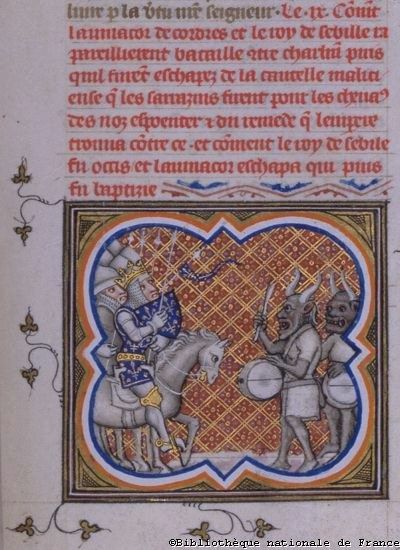 liure p la vtu nre seigneur. Le .ix. Coment
laumacor de cordres et le roy de sebille ra
pareillierent bataille otre charlem puis
quil furent eschapez de la cautelle malici
euse q les sarrazins firent pour les cheuaus
des noz espoenter & du remede q lempere
trouua cotre ce et coment le roy de sebile
fu occis et laumacor eschapa qui puis
fu baptize
©Bibliothèque nationale de France